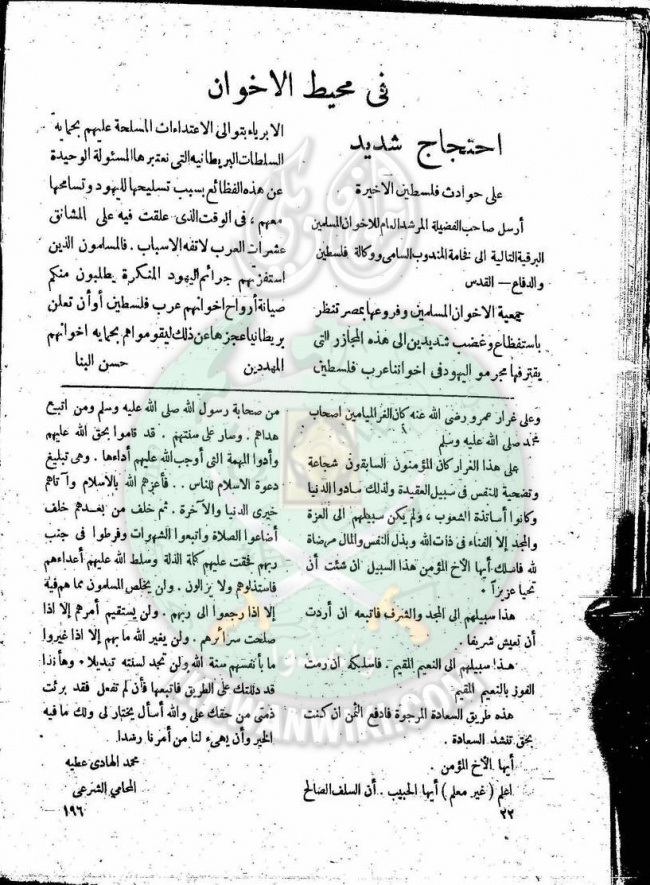 فى محيط الاخوان
احتجاج شديد
على حوادث فلسطين الأخيرة
أرسل صاحب الفضيلة المرشد العام للاخوان المسلمين
البرقية التالية الى فخامة المندوب السامى ووكالة فلسطين
والدفاع — القدس
جمعية الاخوان المسلمين وفروعها بمصر تنظر
باستفظاع وغضب شديدين الى هذه المجازر التى
يقترفها مجرمو اليهود فى اخواننا عرب فلسطين
الابرياء بتوالى الاعتداءات المسلحة عليهم بحمايه
السلطات البريطانيه التى نعتبرها المسئولة الوحيدة
عن هذه الفظائع بسبب تسليحها لليهود وتسامحها
معهم، فى الوقت الذى علقت فيه على المشانق
عشرات العرب لاتفه الاسباب . فالمسلمون الذين
استفزتهم جرائم اليهود المنكرة يطلبون منكم
صيانة أرواح اخوانهم عرب فلسطين أو أن تعلن
بريطانيا عجزها عن ذلك ليقوموا هم بحمايه اخوانهم
المهددين حسن البنا
وعلى غرار عمرو رضى الله عنه كان الغر الميامين اصحاب
محمد صلى الله عليه وسلم
على هذا الغرار كان المؤمنون السابقون شجاعة
وتضحية للنفس فى سبيل العقيدة ولذلك سادوا الدنيا
وكانوا أساتذة الشعوب ، ولم يكن سبيلهم الى العزة
والمجد إلا الفناء فى ذات الله وبذل النفس والمال مرضاة
لله فاسلك أيها الأخ المؤمن هذا السبيل ان شئت أن
تحيا عزيزاً .
هذا سبيلهم الى المجد والشرف فاتبعه ان أردت
أن تعيش شريفا .
هذا سبيلهم الى النعيم المقيم . فاسلكه ان رمت
الفوز بالنعيم المقيم
هذه طريق السعادة المرجوة فادفع الثمن ان كنت
بحق تنشد السعادة .
أيها الأخ المؤمن .
اعلم (غير معلم) أيها الحبيب . أن السلف الصالح
٢٢
من صحابة رسول الله صلى الله عليه وسلم ومن اتبع
هداهم . وسار على سنتهم . قد قاموا بحق الله عليهم
وأدوا المهمة التى أوجب الله عليهم أداءها . وهى تبليغ
دعوة الاسلام للناس . . فأعزهم الله بالاسلام وآتاهم
خيرى الدنيا والآخرة . ثم خلف من بعدهم خلف
أضاعوا الصلاة واتبعوا الشهوات وفرطوا فى جنب
ربهم فحقت عليهم كلمة الذلة وسلط الله عليهم أعداءهم
فاستذلوهم ولا يزالون . ولن يخلص المسلمون مما هم فيه
إلا إذا رجعوا الى ربهم . ولن يستقيم أمرهم إلا اذا
صلحت سرائرهم . ولن يغير الله ما بهم إلا اذا غيروا
ما بأنفسهم سنة الله ولن تجد لسنته تبديلا . وهأنذا
قد دللتك على الطريق فاتبعها فأن لم تفعل فقد برئت
ذمتى من حقك على والله أسأل يختار لى ولك ما فيه
الخير وأن يهىء لنا من أمرنا رشدا.
محمد الهادى عطيه
المحامى الشرعى
١٩٦